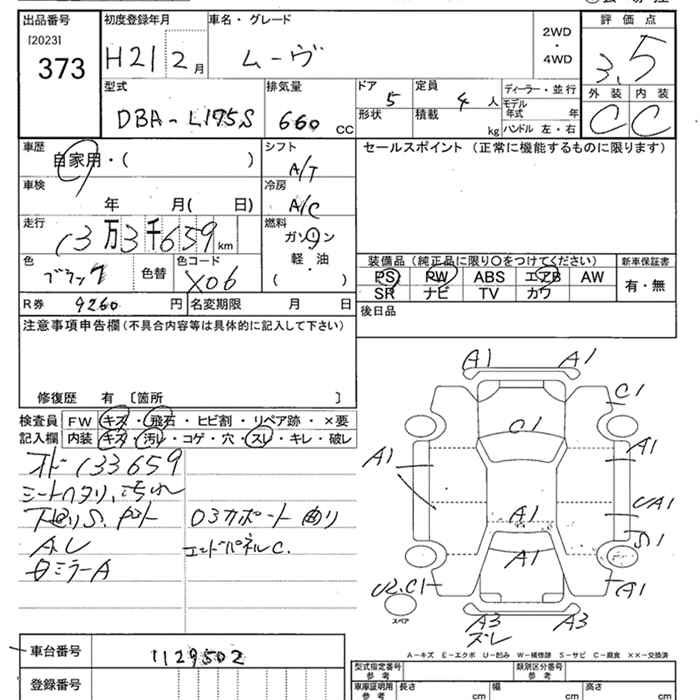 出品番号
[2023]
373
初度登録年月
H21 2月
車名・グレード
ムーヴ
2WD
・
4WD
評価点
3.5
型式
DBA-L175S
排気量
660 CC
ドア 5
形状
定員 4 人
積載 kg
ディーラー・並行
モデル年式 年
ハンドル 左・右
外装 内装
C C
車歴
自家用・( )
シフト
A/T
セールスポイント (正常に機能するものに限ります)
車検
年 月( 日)
冷房
A/C
走行
13万3千659km
燃料
ガソリン
軽・油
( )
色
ブラック
色替
色コード
X06
装備品 (純正品に限り○をつけてください)
新車保証書
PS PW ABS エアB AW
有・無
SR ナビ TV カワ
R券 9260 円
名変期限 月 日
後日品
注意事項申告欄 (不具合内容等は具体的に記入して下さい)
修復歴 有 [箇所 ]
検査員 FW キズ・飛石・ヒビ割・リペア跡・×要
記入欄 内装 キズ・汚レ・コゲ・穴・スレ・キレ・破レ
オドー133659
シートヘタリ、汚れ
下廻りS、
A.レ
ロミラーA
03サポート曲り
エンドパネルC.
A1 A1
C1
C1
A1
A1
UA1
A1
S1
A1
U2.C1
A1
スペア
A3
ズレ
A3
A-キズ E-エクボ U-凹み W-補修跡 S-サビ C-腐食 ××-交換済
車台番号 1129502
登録番号
型式指定番号 参考
類別区分番号 参考
車庫証明用 参考
長さ cm
幅 cm
高さ cm